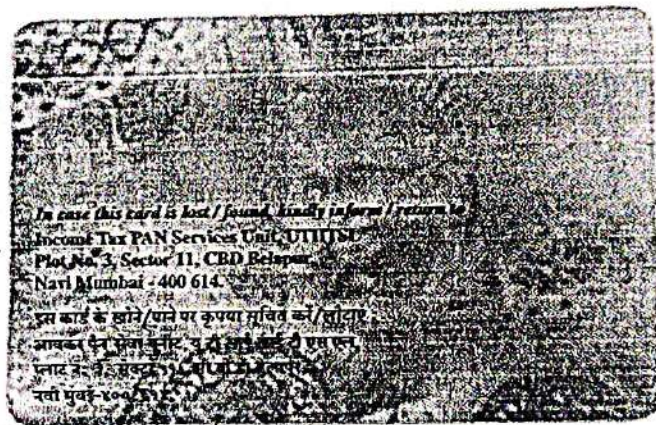 In case this card is lost / found, kindly inform / return to :
Income Tax PAN Services Unit, UTITSL
Plot No. 3, Sector 11, CBD Belapur,
Navi Mumbai - 400 614.
इस कार्ड के खोने/पाने पर कृपया सूचित करें/लौटाएं :
आयकर पैन सेवा यूनीट,
प्लाट नं. ३, सेक्टर ११,
नवी मुंबई-४०० ६१४.